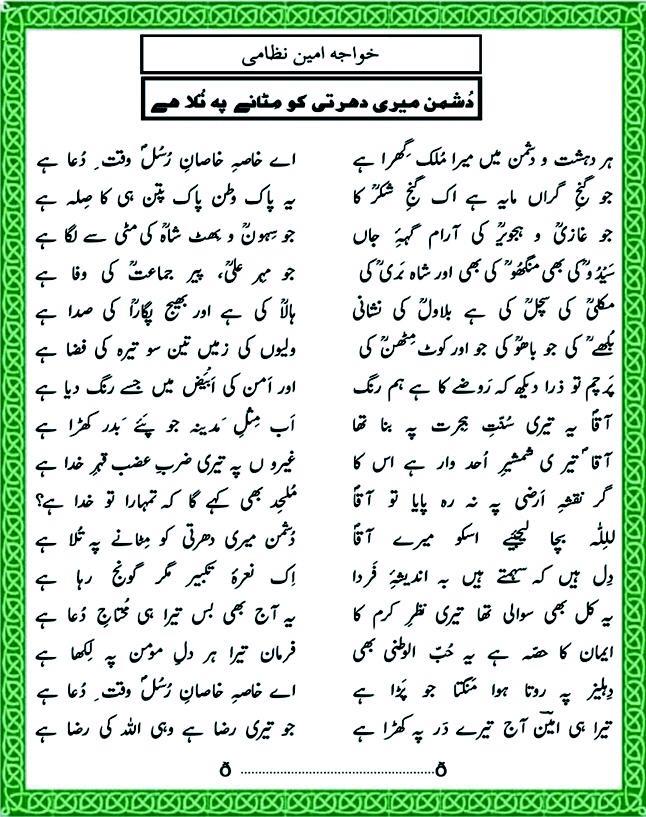 خواجہ امین نظامی
دُشمن میری دھرتی کو مِٹانے پہ تُلا ھے
ہر دہشت و دشمن میں میرا مُلک گِھرا ہے اے خاصۂِ خاصانِ رُسُلؐ وقتِ دُعا ہے
جو گنجِ گراں مایہ ہے اک گنجِ شکرؒ کا یہ پاک وطن پاک پتن ہی کا صِلہ ہے
جو غازیؒ و ہجویرؒ کی آرام گہۂِ جاں جو سِہونؒ و بھٹ شاہؒ کی مٹی سے لگا ہے
سَیدُوؒ کی بھی منگھوؒ کی بھی اور شاہ بَریؒ کی جو مِہر علیؒ، پیر جماعتؒ کی وفا ہے
مکلیؒ کی سچلؒ کی ہے بلاولؒ کی نشانی ہالاؒ کی ہے اور بھیج پگاراؒ کی صدا ہے
بُلھےؒ کی جو باھوؒ کی جو اور کوٹ مِٹھنؒ کی ولیوں کی زمیں تین سو تیرہ کی فضا ہے
پَرچم تو ذرا دیکھ کہ رَوضے کا ہے ہم رنگ اور اَمن کی اَبیُض میں جسے رنگ دیا ہے
آقاؐ یہ تیری سُنّتِ ہِجرت پہ بنا تھا اَب مِثلِ مَدینہ جو پئے بَدر کھڑا ہے
آقاؐ تیری شمشیرِ اُحد وار ہے اس کا غیروں پہ تیری ضربِ عضب قہرِ خدا ہے
گر نقشۂِ اَرضی پہ نہ رہ پایا تو آقاؐ مُلحِد بھی کہے گا کہ تمہارا تو خدا ہے؟
للِلّٰہ بچا لیجیئے اسکو میرے آقاؐ دُشمن میری دھرتی کو مِٹانے پہ تُلا ہے
دِل ہیں کہ سہمتے ہیں بہ اندیشۂِ فَردا اِک نعرۂ تکبیر مگر گونج رہا ہے
یہ کل بھی سوالی تھا تیری نظرِ کرم کا یہ آج بھی بس تیرا ہی مُحتاجِ دُعا ہے
ایمان کا حصّہ ہے یہ حُبّ الوطنی بھی فرمان تیرا ہر دلِ مؤمن پہ لِکھا ہے
دِہلیز پہ روتا ہوا مَنگتا جو پَڑا ہے اے خاصۂِ خاصانِ رُسُلؐ وقتِ دُعا ہے
تیرا ہی امینؔ آج تیرے دَر پہ کھڑا ہے جو تیری رضا ہے وہی اللہ کی رضا ہے